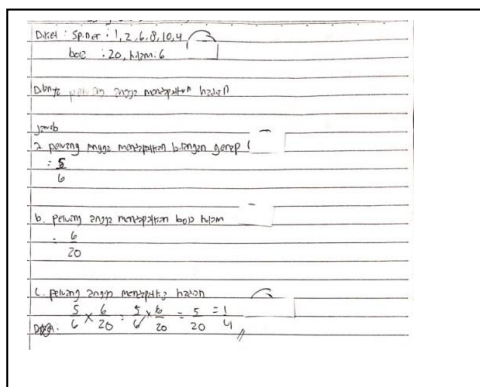 Diket : Spiner : 1, 2, 6, 8, 10, 4
bola : 20, hitam : 6
Ditanya peluang angga mendapatkan hadiah
Jawab
a. peluang angga mendapatkan bilangan genap (
= 5/6
b. peluang angga mendapatkan bola hitam
= 6/20
c. peluang angga mendapatkan hadiah
5/6 × 6/20 = 5/6 × 6/20 = 5/20 = 1/4